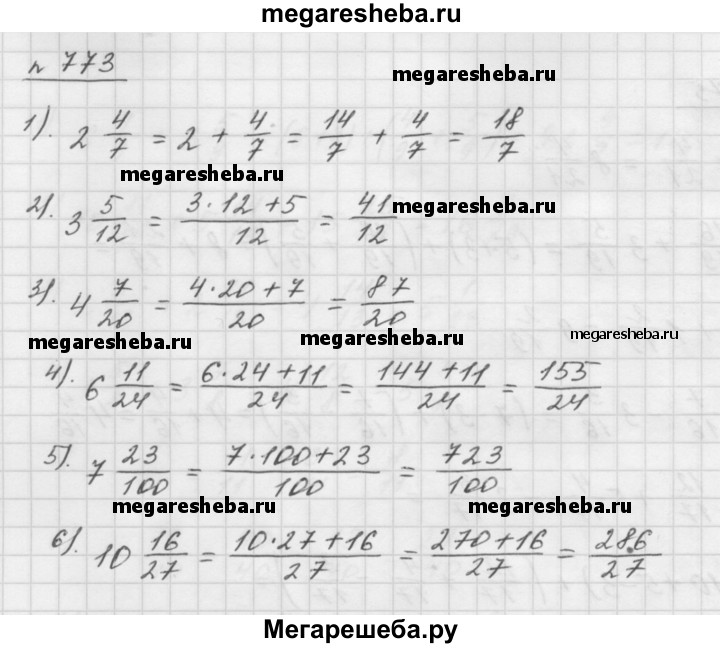 megaresheba.ru
n 773
megaresheba.ru
1). 2 4/7 = 2 + 4/7 = 14/7 + 4/7 = 18/7
megaresheba.ru
megaresheba.ru
2). 3 5/12 = (3·12+5)/12 = 41/12
3). 4 7/20 = (4·20+7)/20 = 87/20
megaresheba.ru
megaresheba.ru
megaresheba.ru
4). 6 11/24 = (6·24+11)/24 = (144+11)/24 = 155/24
5). 7 23/100 = (7·100+23)/100 = 723/100
megaresheba.ru
megaresheba.ru
6). 10 16/27 = (10·27+16)/27 = (270+16)/27 = 286/27
Мегарешеба.ру